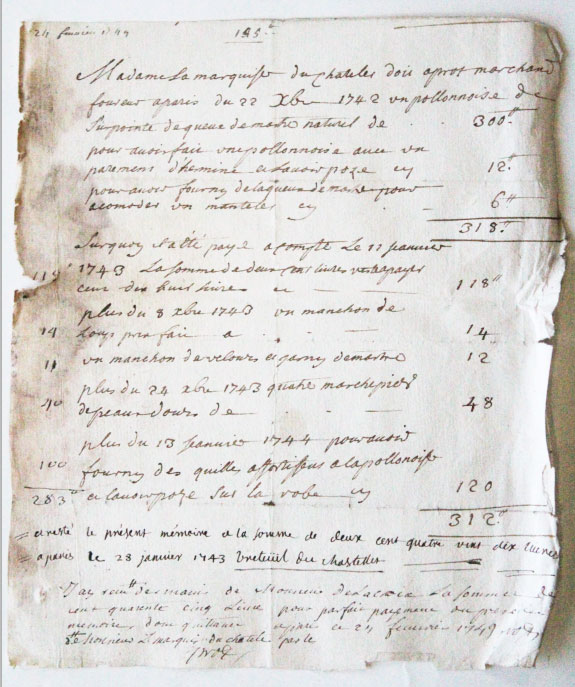 24 fevrier 1749
145ᵗᵗ
Madame La marquise du Chatelet doit a prot marchand
foureur a paris du 22 Xbre 1742 un pollonnoise de
Sa pointe de queue de martre naturel de 300ᵗᵗ
pour avoir fait une pollonnoise avec un
parement d'hermine et lavoir poze cy 12ᵗᵗ
pour avoir fourny de la queue de martre pour
acomoder un mantelet cy 6ᵗᵗ
318ᵗᵗ
Surquoy il a été payé a compte Le 11 Janvier
1743 La somme de deux cent livres reste a payer
cent dix huit livres cy 118ᵗᵗ
plus du 8 xbre 1743 un manchon de
Loup 14
14
un manchon de velours et garny de martre 12
11
plus du 24 xbre 1743 quatre marchepieds
de peaux dours de 48
40
plus du 13 Janvier 1744 pour avoir
100
fourny des quilles assortissus a la pollonoise
283ᵗᵗ
et lavoir poze sur la robe cy 120
312ᵗᵗ
aresté le présent mémoire a la somme de deux cent quatre vint dix livres
a paris le 28 janvier 1743 breteuil du chastellet
J'ay des mains de Monsieur de Lacroix La somme de
cent quarente cinq Livre pour parfait payement du present
memoire, dont quittance a paris ce 24 feuvrier 1749
de Monsieur Le marquis du chatelet
prot